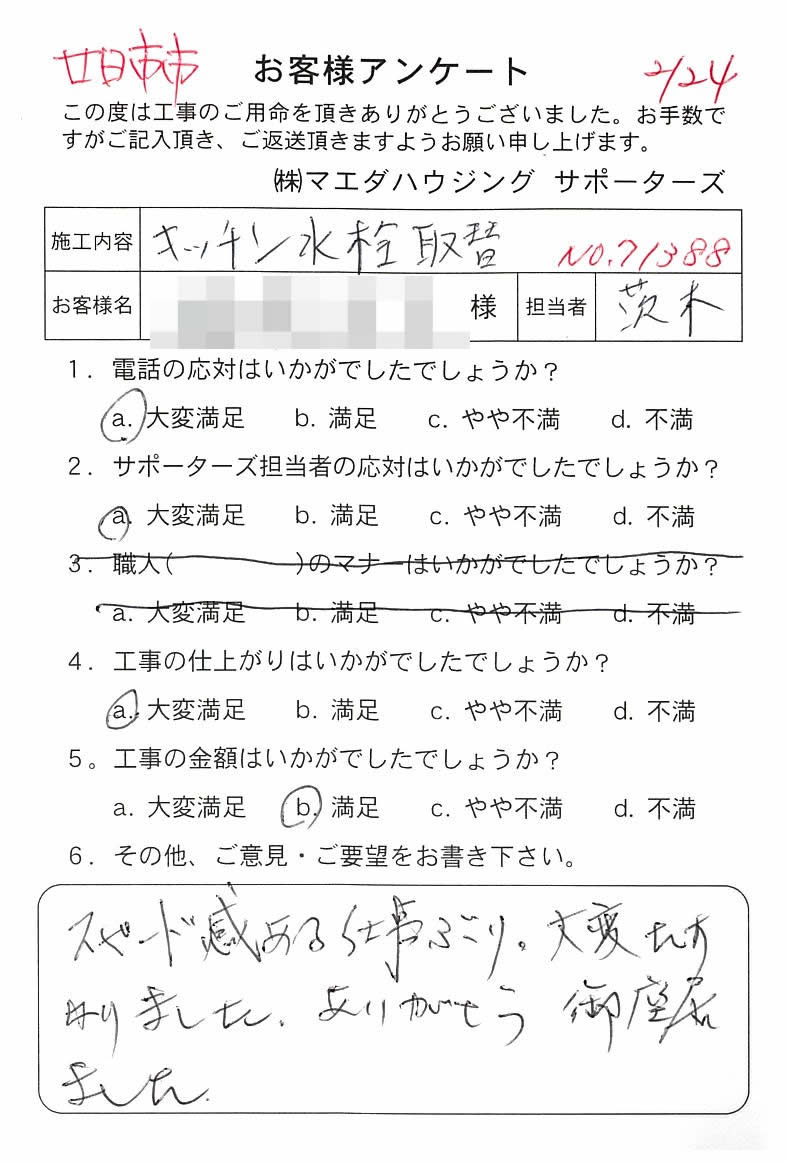 廿日市市 お客様アンケート 2/24
この度は工事のご用命を頂きありがとうございました。お手数で
すがご記入頂き、ご返送頂きますようお願い申し上げます。
㈱マエダハウジング サポーターズ
施工内容 キッチン水栓取替 NO.71388
お客様名 様 担当者 茨木
1. 電話の応対はいかがでしたでしょうか？
a. 大変満足 b. 満足 c. やや不満 d. 不満
2. サポーターズ担当者の応対はいかがでしたでしょうか？
a. 大変満足 b. 満足 c. やや不満 d. 不満
3. 職人( )のマナーはいかがでしたでしょうか？
a. 大変満足 b. 満足 c. やや不満 d. 不満
4. 工事の仕上がりはいかがでしたでしょうか？
a. 大変満足 b. 満足 c. やや不満 d. 不満
5。工事の金額はいかがでしたでしょうか？
a. 大変満足 b. 満足 c. やや不満 d. 不満
6. その他、ご意見・ご要望をお書き下さい。
スピード感ある仕事ぶり。大変たす
かりました。ありがとう御座居
ました。